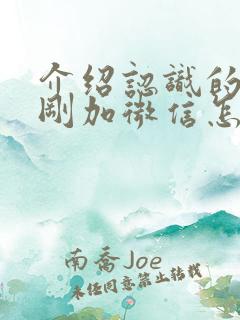 介紹認識的
剛加微信怎
南喬Joe
未经同意禁止转载